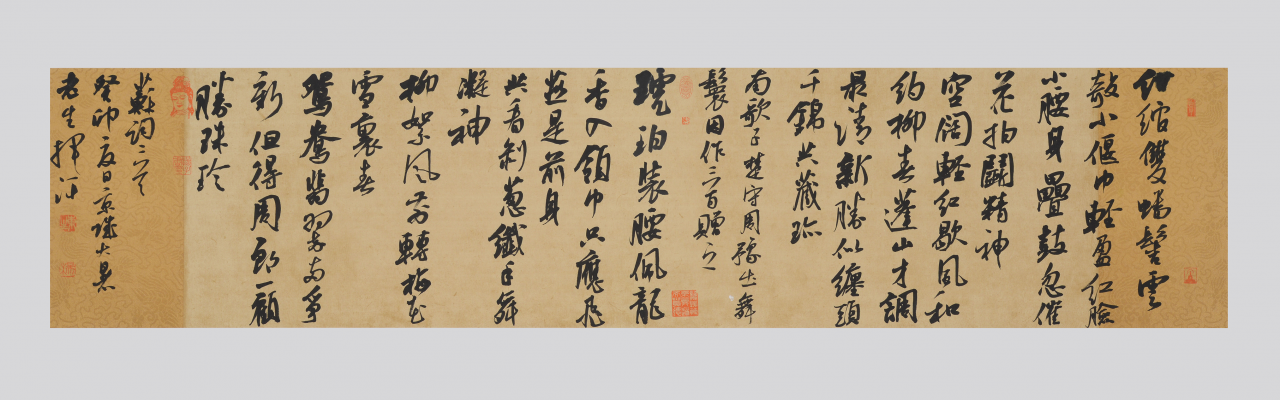 紺綰雙蟠髻雲
欹小偃巾輕盈紅臉
小腰身疊鼓忽催
花拍鬭精神
空闊輕紅歇風和
約柳春蓬山才調
最清新勝似纏頭
千錦共藏珎
南歌子楚守周豫出舞
鬟因作二首贈之
琥珀裝腰佩龍
香入領巾只應飛
燕是前身
共看剥葱纖手舞
凝神
柳絮風前轉梅花
雪裏春
鴛鴦翡翠兩爭
新但得周郎一顧
勝珠珎
蘇詞二首
癸卯夏日京城大暑
老生揮汗